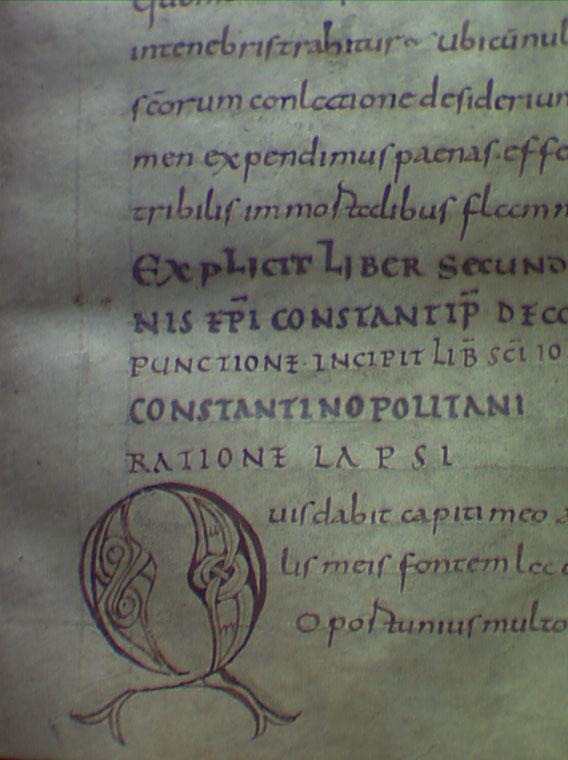 intenebris trahitur ubicūnul
sc̄orum conlectione desiderium
men expendimus paenas. effe
tribilis immortalibus flamm
EXPLICIT LIBER SECUND
NIS EP̄I CONSTANTIP̄ DE CO
PUNCTIONE. INCIPIT LIB̄ SC̄I IO
CONSTANTINOPOLITANI
RATIONE LAPSI
Quis dabit capiti meo a
lis meis fontem lac
Oportunius multo